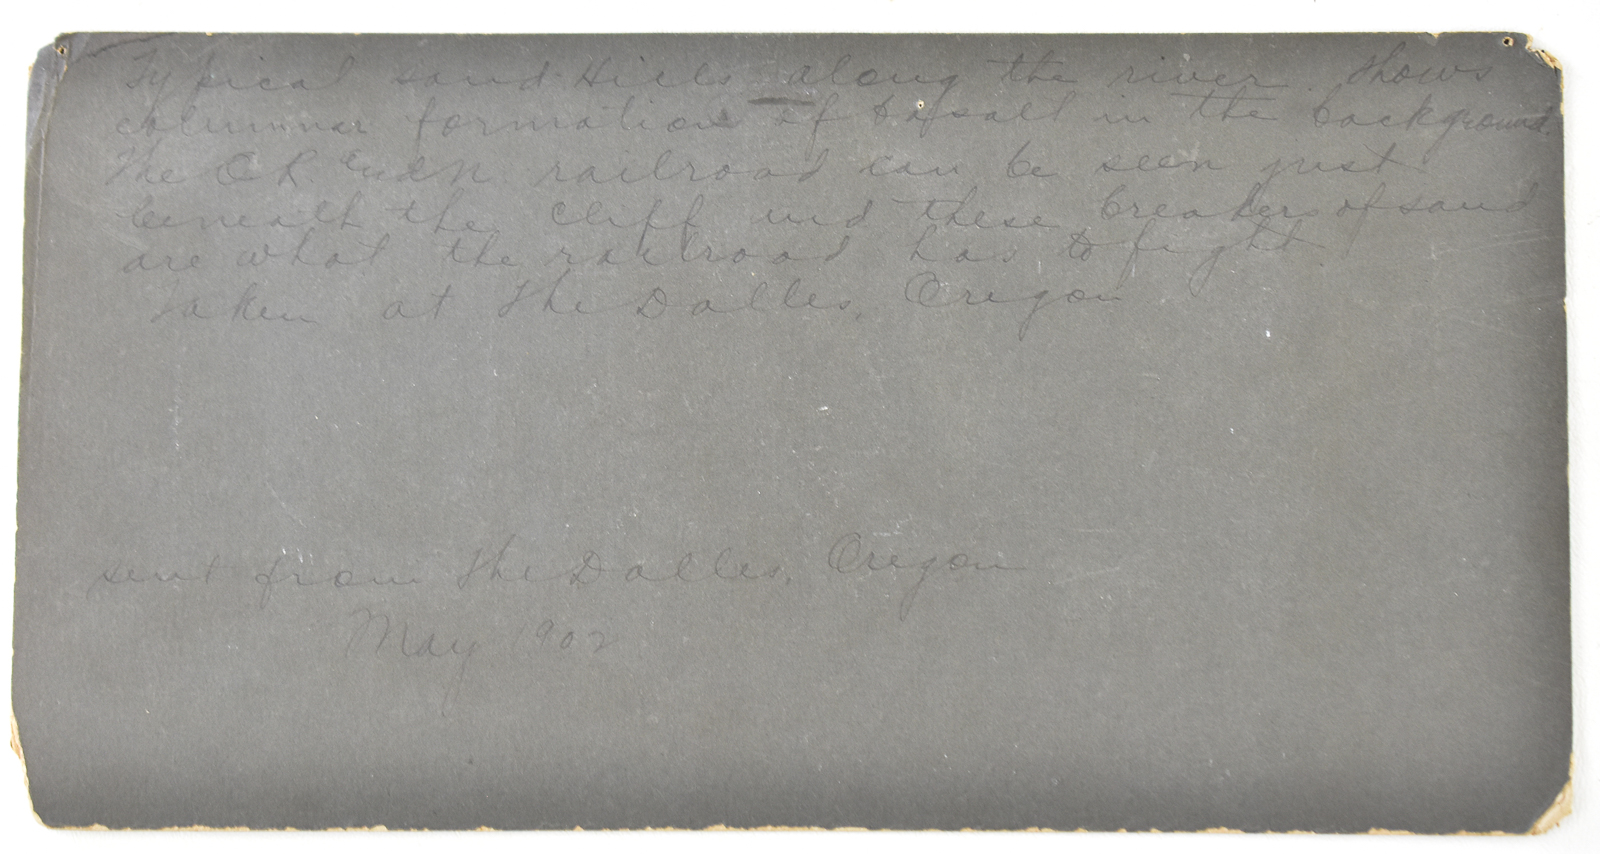 Typical sand Hills along the river. Shows
columnar formation of basalt in the background.
The O.R. and N. railroad can be seen just
beneath the cliff and these breakers of sand
are what the railroad has to fight.
Taken at The Dalles, Oregon
sent from The Dalles, Oregon
May 1902